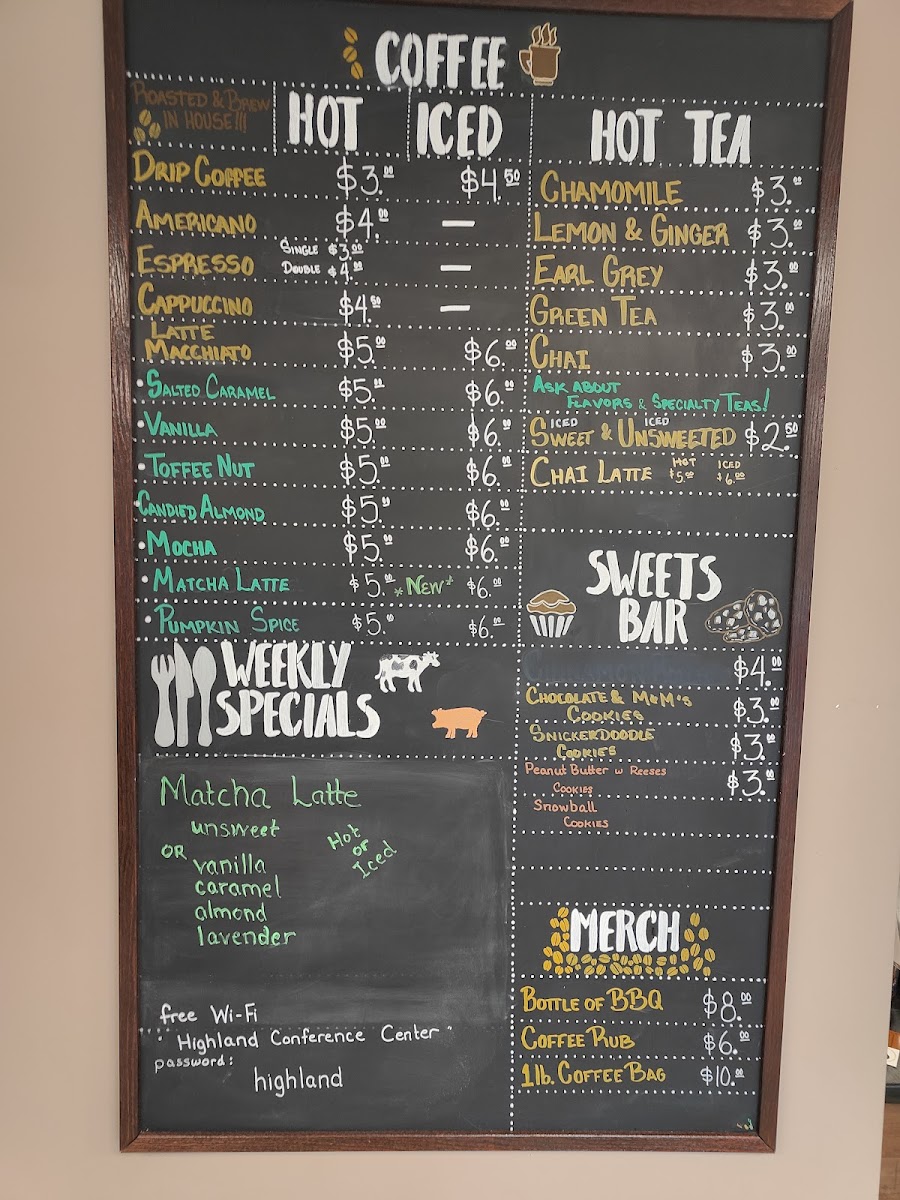 COFFEE
ROASTED & BREW
IN HOUSE!!!
HOT ICED
DRIP COFFEE $3.00 $4.50
AMERICANO $4.00 —
ESPRESSO SINGLE $3.00
DOUBLE $4.00 —
CAPPUCCINO $4.50 —
LATTE
MACCHIATO $5.00 $6.00
•SALTED CARAMEL $5.00 $6.00
•VANILLA $5.00 $6.00
•TOFFEE NUT $5.00 $6.00
•CANDIED ALMOND $5.00 $6.00
•MOCHA $5.00 $6.00
•MATCHA LATTE $5.00 *NEW* $6.00
•PUMPKIN SPICE $5.00 $6.00
WEEKLY
SPECIALS
Matcha Latte
unsweet
OR
vanilla
caramel
almond
lavender
Hot
or
Iced
free Wi-Fi
"Highland Conference Center"
password:
highland
HOT TEA
CHAMOMILE $3.00
LEMON & GINGER $3.00
EARL GREY $3.00
GREEN TEA $3.00
CHAI $3.00
ASK ABOUT
FLAVORS & SPECIALTY TEAS!
ICED ICED
SWEET & UNSWEETED $2.50
CHAI LATTE HOT $5.00 ICED $6.00
SWEETS
BAR
$4.00
CHOCOLATE & M&M'S
COOKIES $3.00
SNICKERDOODLE
COOKIES $3.00
Peanut Butter w Reeses
COOKIES $3.00
Snowball
COOKIES
MERCH
BOTTLE OF BBQ $8.00
COFFEE RUB $6.00
1lb. COFFEE BAG $10.00